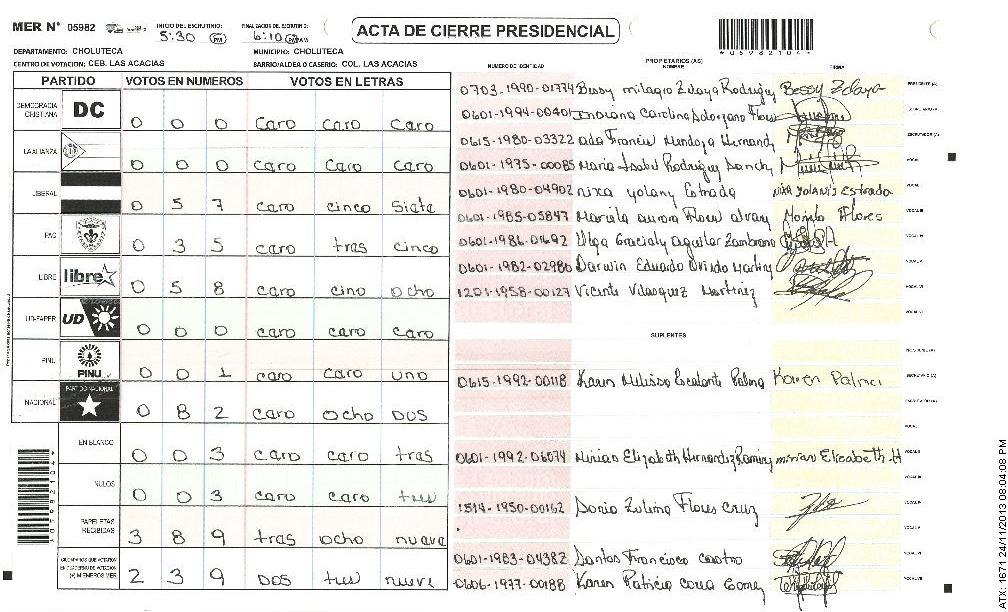 MER N° 05982
INICIO DEL ESCRUTINIO: 5:30 PM
FINALIZACION DEL ESCRUTINIO: 6:10 PM
ACTA DE CIERRE PRESIDENCIAL
*05982104*
DEPARTAMENTO: CHOLUTECA MUNICIPIO: CHOLUTECA
CENTRO DE VOTACION: CEB. LAS ACACIAS BARRIO/ALDEA O CASERIO: COL. LAS ACACIAS
PARTIDO VOTOS EN NUMEROS VOTOS EN LETRAS
DEMOCRACIA CRISTIANA DC 0 0 0 caro caro caro
LA ALIANZA 0 0 0 caro caro caro
LIBERAL 0 5 7 caro cinco siete
PAC 0 3 5 caro tras cinco
LIBRE libre 0 5 8 caro cino ocho
UD-FAPER UD 0 0 0 caro caro caro
PINU PINU 0 0 1 caro caro uno
NACIONAL PARTIDO NACIONAL 0 8 2 caro ocho dos
EN BLANCO 0 0 3 caro caro tras
NULOS 0 0 3 caro caro tres
PAPELETAS RECIBIDAS 3 8 9 tras ocho nueve
CIUDADANOS QUE VOTARON EN CUADERNO DE VOTACION (+) MIEMBROS MER 2 3 9 DOS tres nueve
*05982104*
NUMERO DE IDENTIDAD PROPIETARIOS (AS) NOMBRE FIRMA
0703-1990-01774 Bessy milagro Zelaya Rodriguez Bessy Zelaya PRESIDENTE (A)
0601-1994-00401 Indiana Carolina Solorzano Flores SECRETARIO/A
0615-1980-03322 ada Francis Mendoza Hernand ESCRUTADOR (A)
0601-1975-00085 Maria Isabel Rodriguez Sanch VOCAL I
0601-1980-04902 nixa yolany Estrada nixa yolanis Estrada VOCAL II
0601-1985-05847 Mariela aurora Flores alvarez Mariela Flores VOCAL III
0601-1986-01692 Olga Gracialy aguilar Zambrano VOCAL IV
0601-1982-02980 Darwin Eduardo Oviedo Martinez VOCAL V
1201-1958-00127 Vicente Velasquez Martinez VOCAL VI
VOCAL VII
SUPLENTES
PRESIDENTE (A)
0615-1992-00118 Karen Melissa Escalante Palma Karen Palma SECRETARIO (A)
ESCRUTADOR (A)
VOCAL I
0601-1992-06074 Mirian Elizabeth Hernandez Ramirez mirian Elizabeth H VOCAL II
VOCAL III
1514-1950-00162 Sonia Zulima Flores Cruz VOCAL IV
VOCAL V
0601-1983-04382 Santos Francisco Castro VOCAL VI
0606-1977-00188 Karen Patricia Corea Gomez VOCAL VII
ATX: 1671 24/11/2013 08:04:08 PM